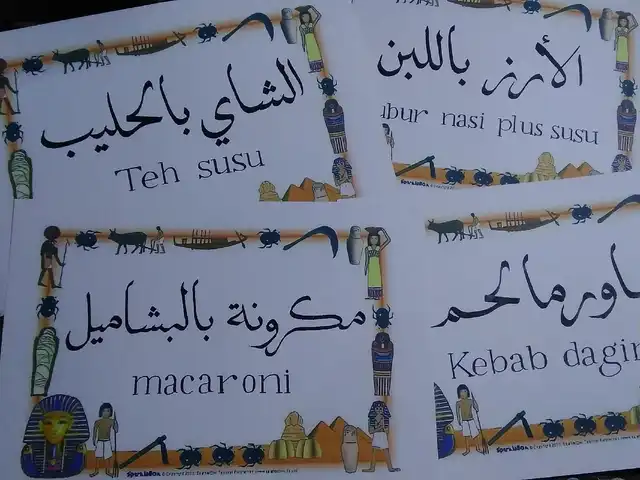 الشاي بالحليب
Teh susu
الأرز باللبن
ubur nasi plus susu
مكرونة بالبشاميل
macaroni
اورمالحم
Kebab dagin
SparkleBox